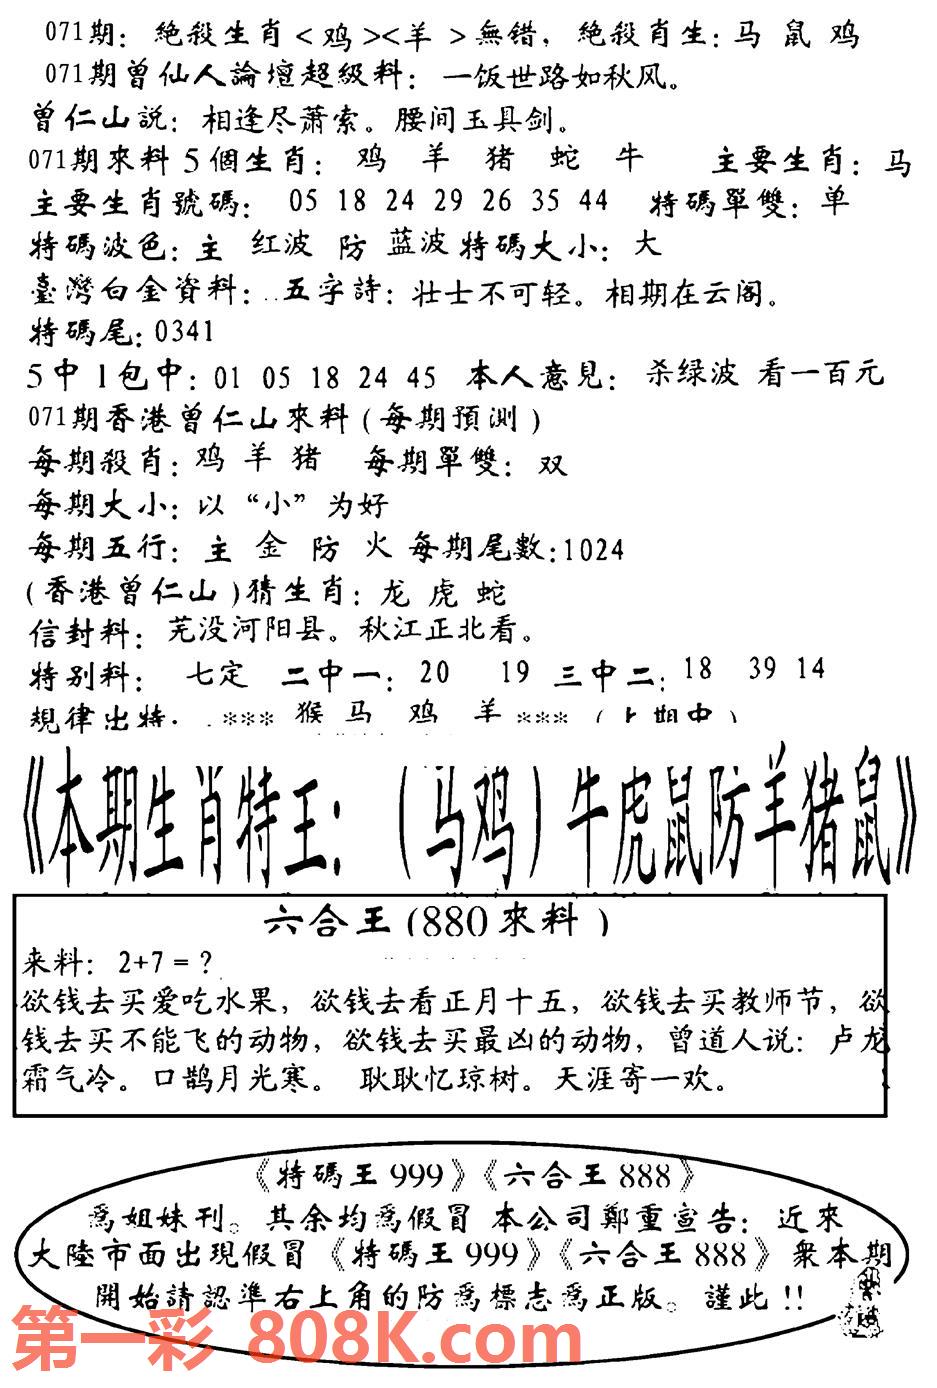 071期：絶殺生肖<鸡><羊>無错，絶殺肖生：马 鼠 鸡
071期曾仙人論壇超級料：一饭世路如秋风。
曾仁山説：相逢尽萧索。腰间玉具剑。
071期來料5個生肖：鸡 羊 猪 蛇 牛 主要生肖：马
主要生肖號碼：05 18 24 29 26 35 44 特碼單雙：单
特碼波色：主 红波 防 蓝波 特碼大小：大
臺灣白金資料：五字詩：壮士不可轻。相期在云阁。
特碼尾：0341
5中1包中：01 05 18 24 45 本人意見：杀绿波 看一百元
071期香港曾仁山來料(每期預測)
每期殺肖：鸡 羊 猪 每期單雙：双
每期大小：以“小”为好
每期五行：主 金 防 火 每期尾數：1024
(香港曾仁山)猜生肖：龙 虎 蛇
信封料：芜没河阳县。秋江正北看。
特别料：七定 二中一：20 19 三中二：18 39 14
規律出特：***猴 马 鸡 羊***（上期中）
《本期生肖特王：（马鸡）牛虎鼠防羊猪鼠》
六合王(880來料)
来料：2+7=？
欲钱去买爱吃水果，欲钱去看正月十五，欲钱去买教师节，欲
钱去买不能飞的动物，欲钱去买最凶的动物，曾道人说：卢龙
霜气冷。口鹊月光寒。 耿耿忆琼树。天涯寄一欢。
《特碼王999》《六合王888》
爲姐妹刊。其余均爲假冒 本公司鄭重宣告：近來
大陸市面出現假冒《特碼王999》《六合王888》衆本期
開始請認準右上角的防爲標志爲正版。謹此!!
第一彩 808K.com